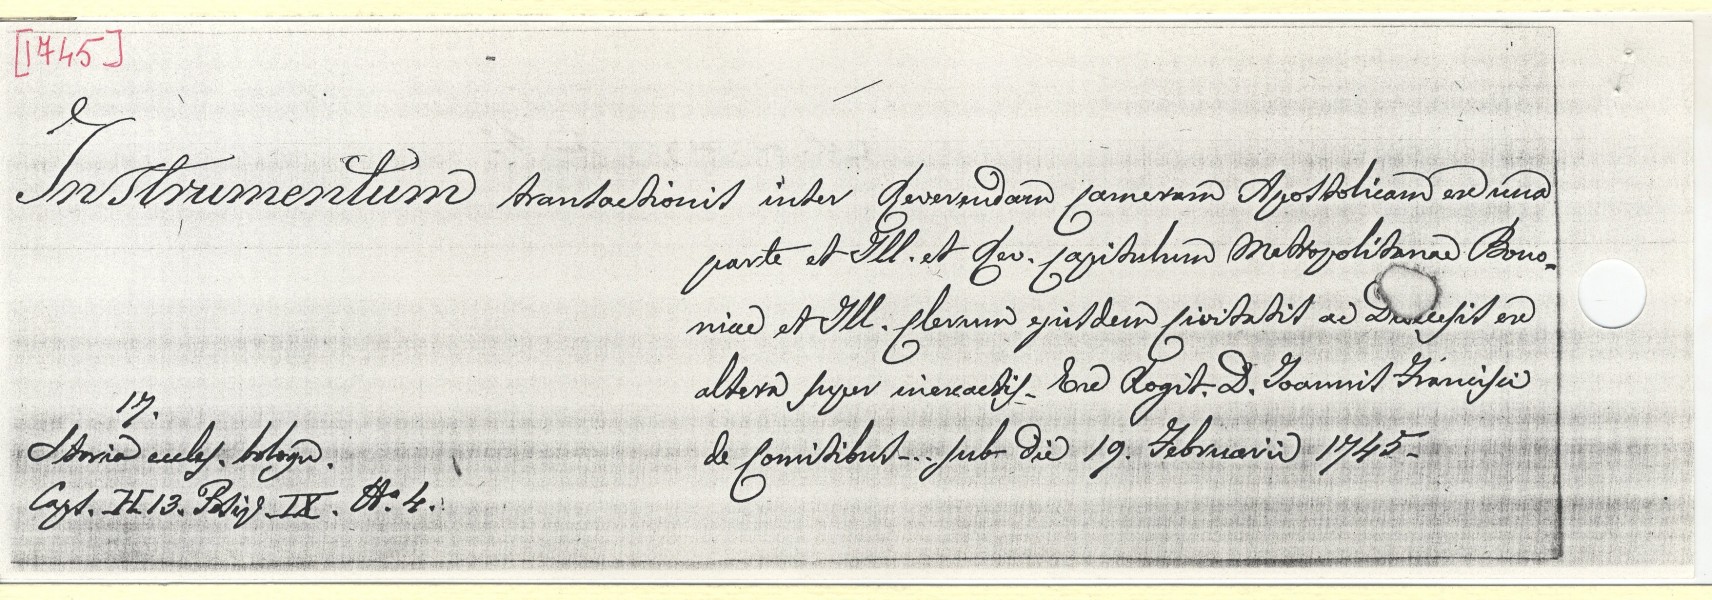 [1745]
Instrumentum transactionis inter Reverendam Cameram Apostolicam ex una
parte et Ill. et Rev. Capitulum Metropolitanae Bono-
niae et Ill. Clerum ejusdem Civitatis ac Diecesis ex
altera super inexactis. Ex Rogit. D. Joannis Francisci
de Comitibus... sub die 19. Februarii 1745.
17.
Storia eccles. bologn.
Caps. 13. IX. N. 4.